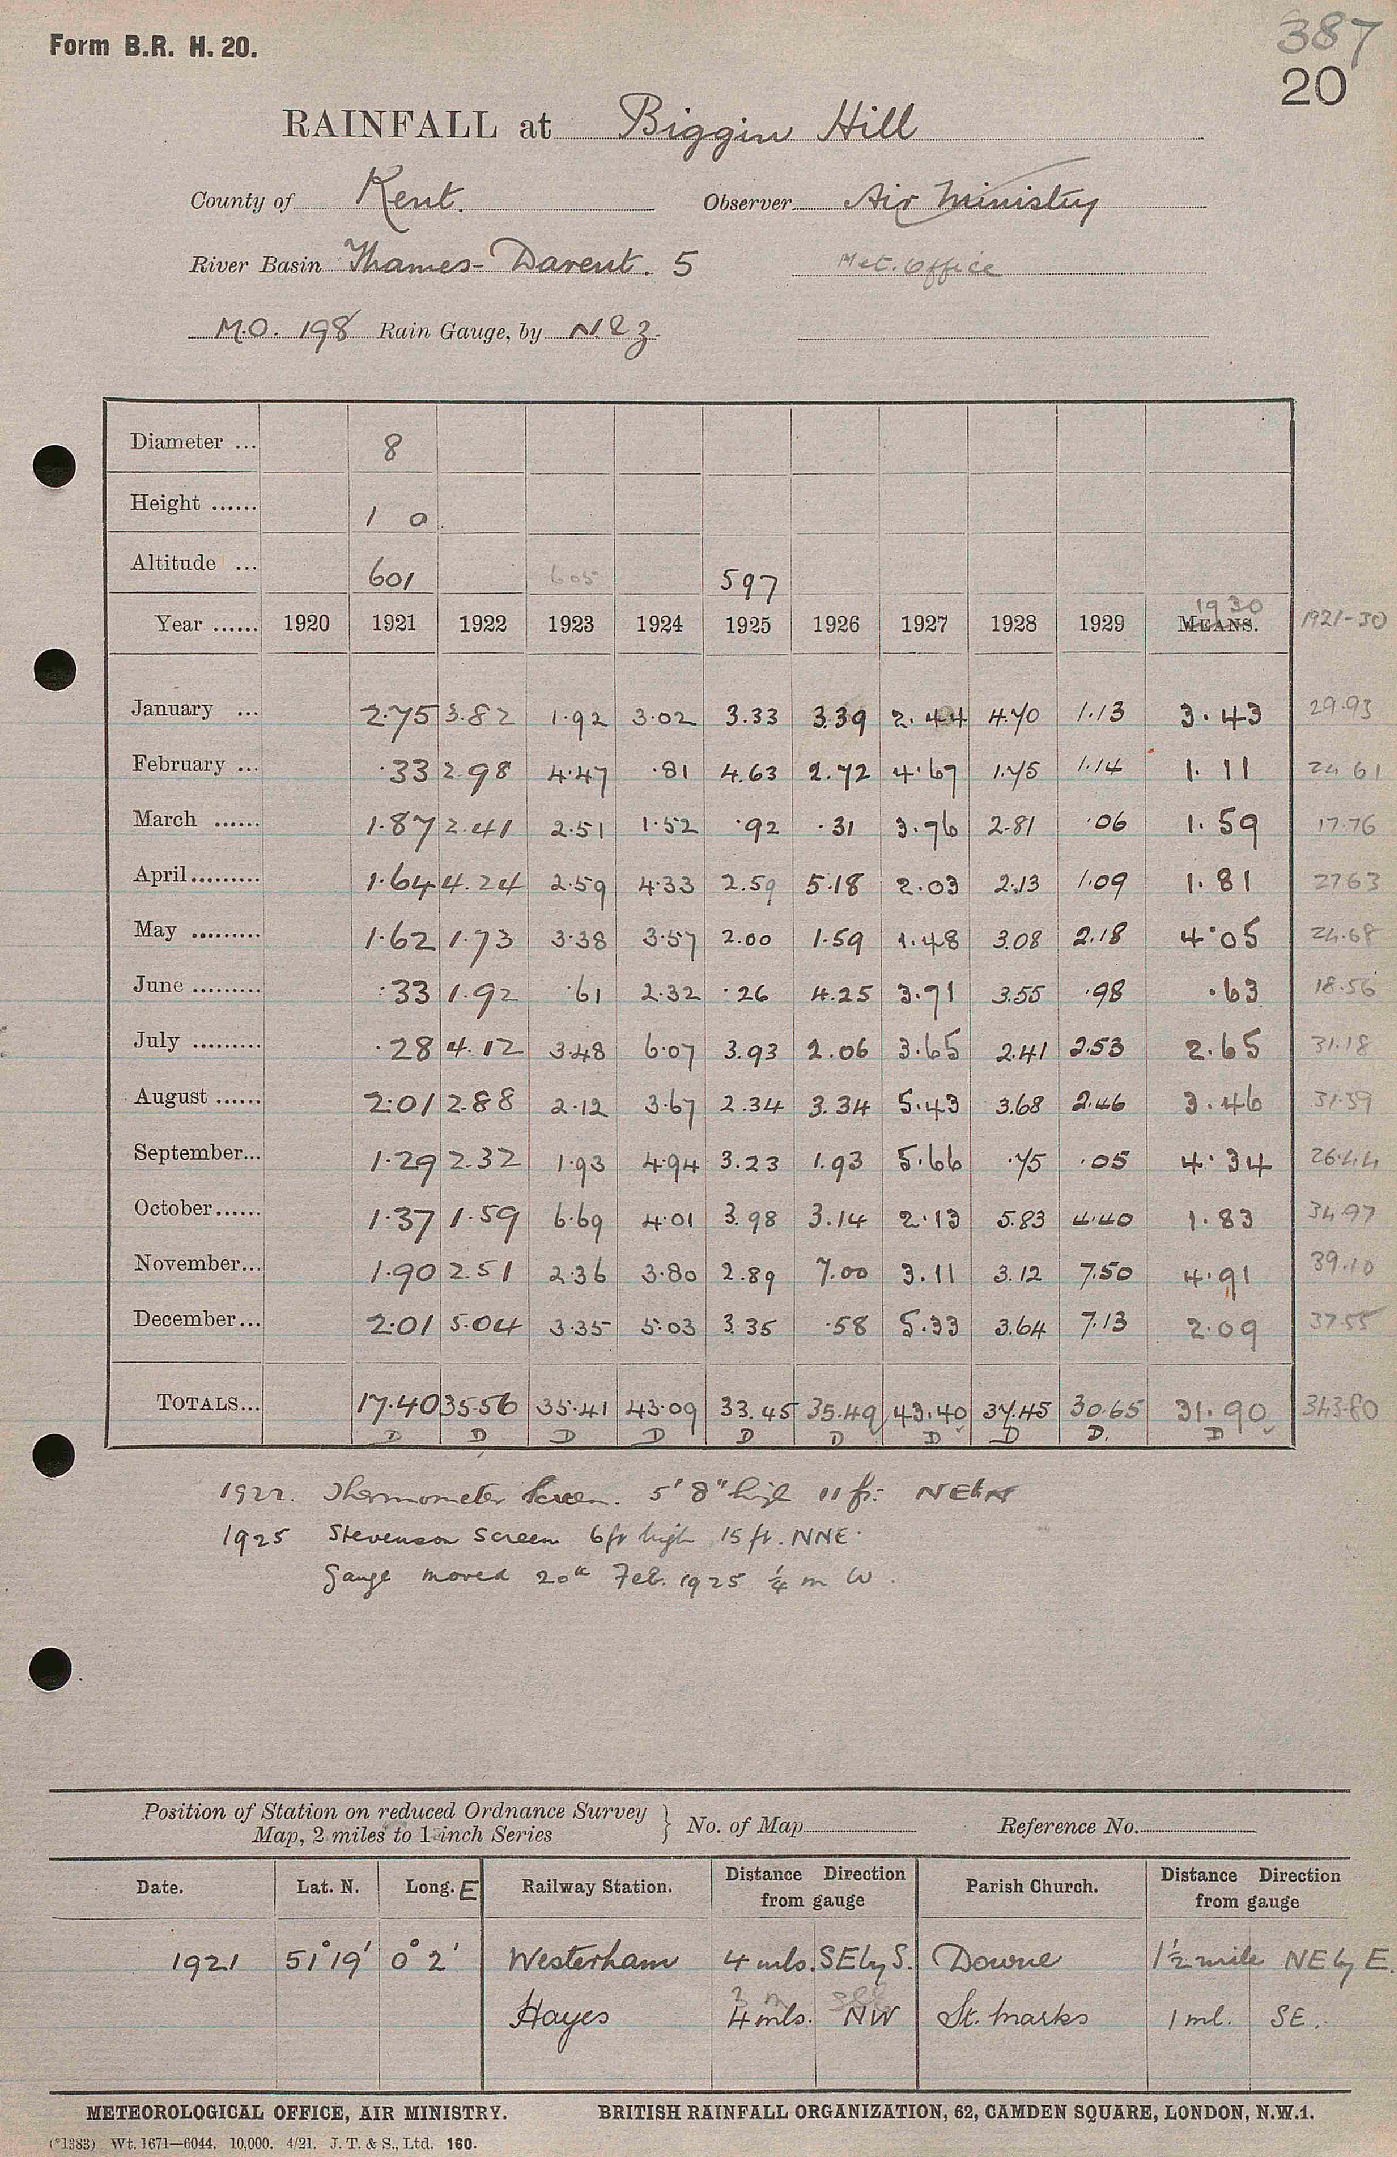 387
Form B.R. H. 20.
20
RAINFALL at Biggin Hill
County of Kent. Observer Air Ministry
River Basin Thames-Darent. 5 Met. Office
M.O. 198 Rain Gauge, by N & Z.
Diameter ... 8
Height ...... 1 0
Altitude ... 601 605 597
Year ...... 1920 1921 1922 1923 1924 1925 1926 1927 1928 1929 MEANS. 1930 1921-30
January ... 2.75 3.82 1.92 3.02 3.33 3.39 2.44 4.70 1.13 3.43 29.93
February ... .33 2.98 4.47 .81 4.63 2.72 4.67 1.75 1.14 1.11 24 61
March ...... 1.87 2.41 2.51 1.52 .92 .31 3.76 2.81 .06 1.59 17.76
April ......... 1.64 4.24 2.59 4.33 2.59 5.18 2.03 2.13 1.09 1.81 27 63
May ......... 1.62 1.73 3.38 3.57 2.00 1.59 1.48 3.08 2.18 4.05 24.68
June ......... .33 1.92 .61 2.32 .26 4.25 3.71 3.55 .98 .63 18.56
July ......... .28 4.12 3.48 6.07 3.93 2.06 3.65 2.41 2.53 2.65 31.18
August ...... 2.01 2.88 2.12 3.67 2.34 3.34 5.43 3.68 2.46 3.46 31.39
September... 1.29 2.32 1.93 4.94 3.23 1.93 5.66 .75 .05 4.34 26.44
October...... 1.37 1.59 6.69 4.01 3.98 3.14 2.13 5.83 4.40 1.83 34.97
November... 1.90 2.51 2.36 3.80 2.89 7.00 3.11 3.12 7.50 4.91 39.10
December... 2.01 5.04 3.35 5.03 3.35 .58 5.33 3.64 7.13 2.09 37.55
TOTALS... 17.40 35.56 35.41 43.09 33.45 35.49 43.40 37.45 30.65 31.90 343.80
D D D D D D D D D. D
1922. Thermometer Screen. 5' 8" high 11 ft.
1925 Stevenson Screen 6ft high 15 ft. NNE.
Gauge moved 20th Feb. 1925 ¼ m W.
Position of Station on reduced Ordnance Survey
Map, 2 miles to 1 inch Series } No. of Map Reference No.
Date. Lat. N. Long. E Railway Station. Distance Direction from gauge Parish Church. Distance Direction from gauge
1921 51°19' 0°2' Westerham 4 mls. SE by S. Downe 1½ mile NE by E.
Hayes 4 mls. NW St. Marks 1 ml. SE.
METEOROLOGICAL OFFICE, AIR MINISTRY. BRITISH RAINFALL ORGANIZATION, 62, CAMDEN SQUARE, LONDON, N.W.1.
(*1383) Wt. 1671—6044. 10,000. 4/21. J. T. & S., Ltd. 160.